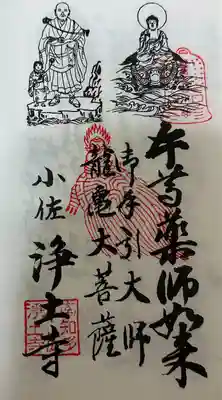 本尊薬師如来
御手引大師
龍亀大菩薩
小佐
浄土寺